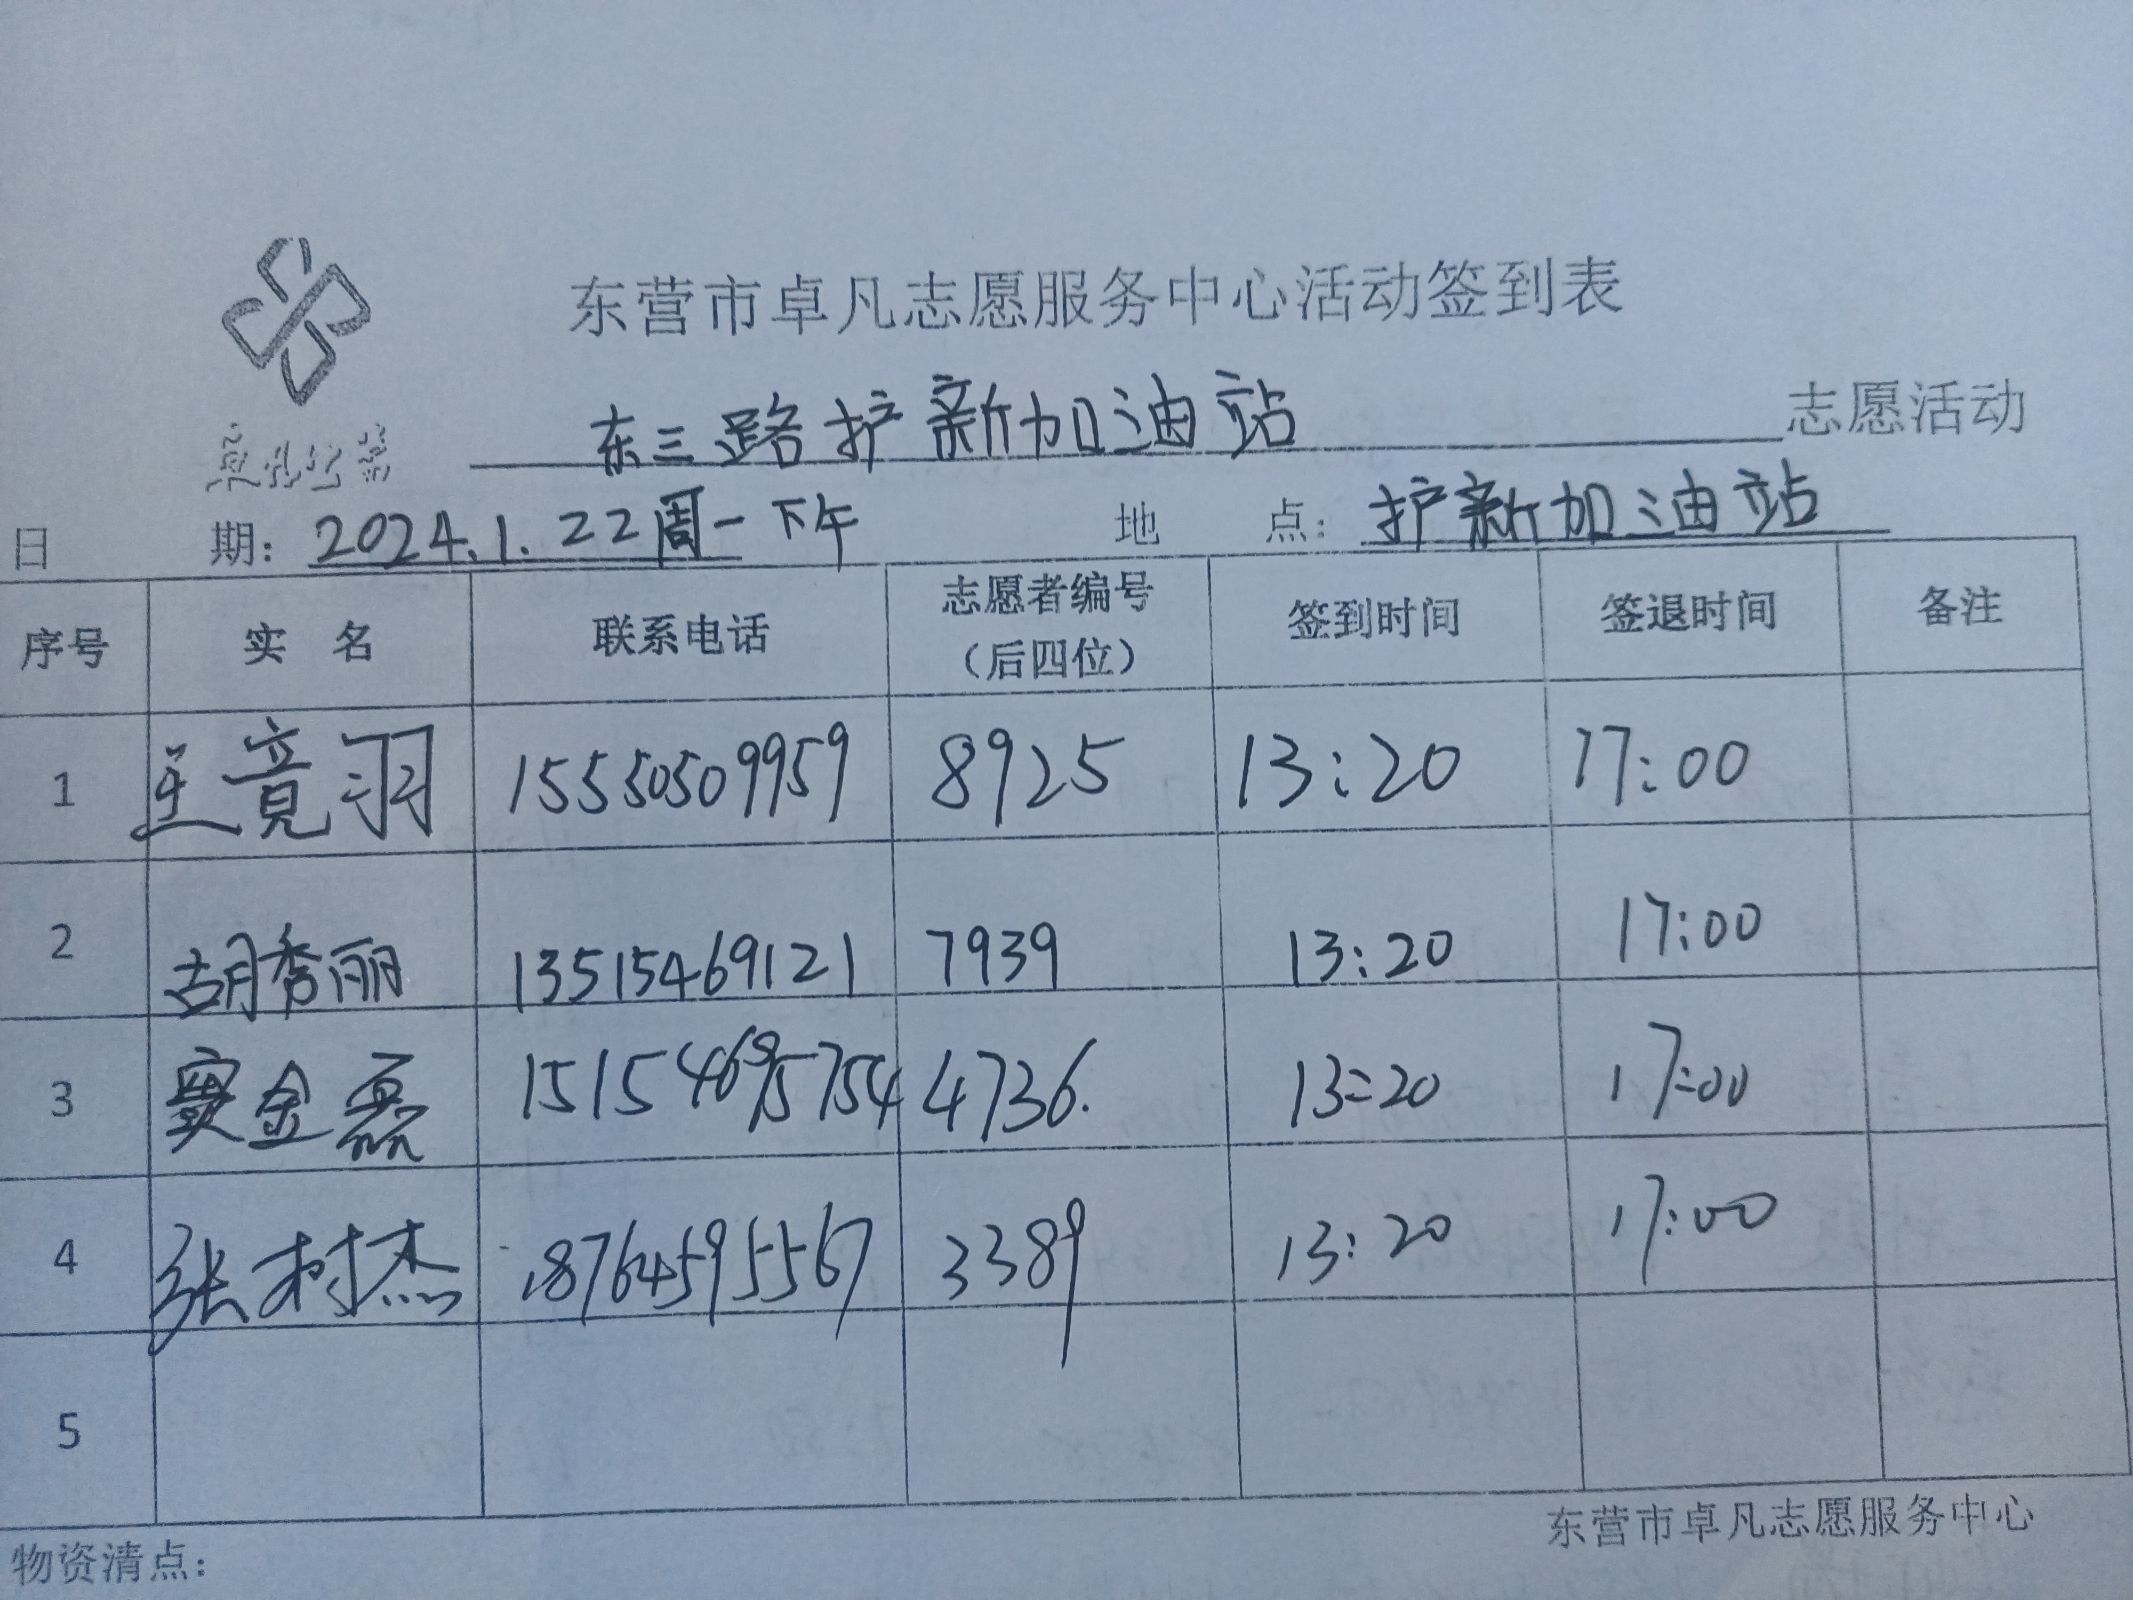 东营市卓凡志愿服务中心活动签到表
卓凡公益
东三路护新加油站 志愿活动
日 期: 2024.1.22周一下午 地 点: 护新加油站
序号 实 名 联系电话 志愿者编号(后四位) 签到时间 签退时间 备注
1 竟羽 15550509959 8925 13:20 17:00
2 胡秀丽 13515469121 7939 13:20 17:00
3 窦金磊 4736. 13:20 17:00
4 张树杰 18764595567 3389 13:20 17:00
5
东营市卓凡志愿服务中心
物资清点: